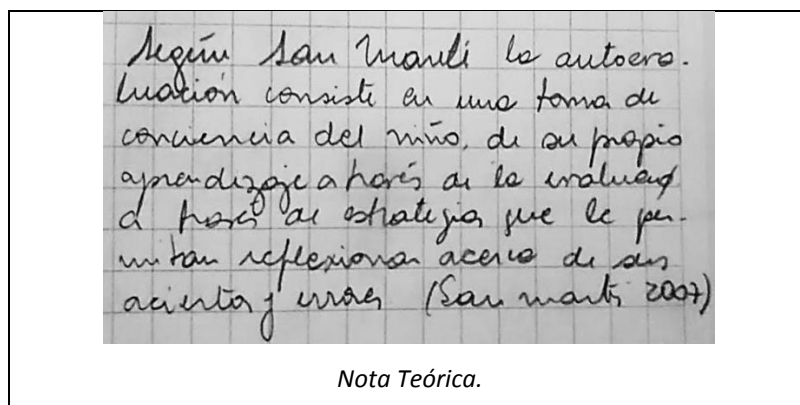 Según San Martí la autoeva-
luación consiste en una toma de
conciencia del niño, de su propio
aprendizaje a través de la evaluación
a través de estrategias que le per-
mitan reflexionar acerca de sus
aciertos y errores (San martí 2007)
Nota Teórica.